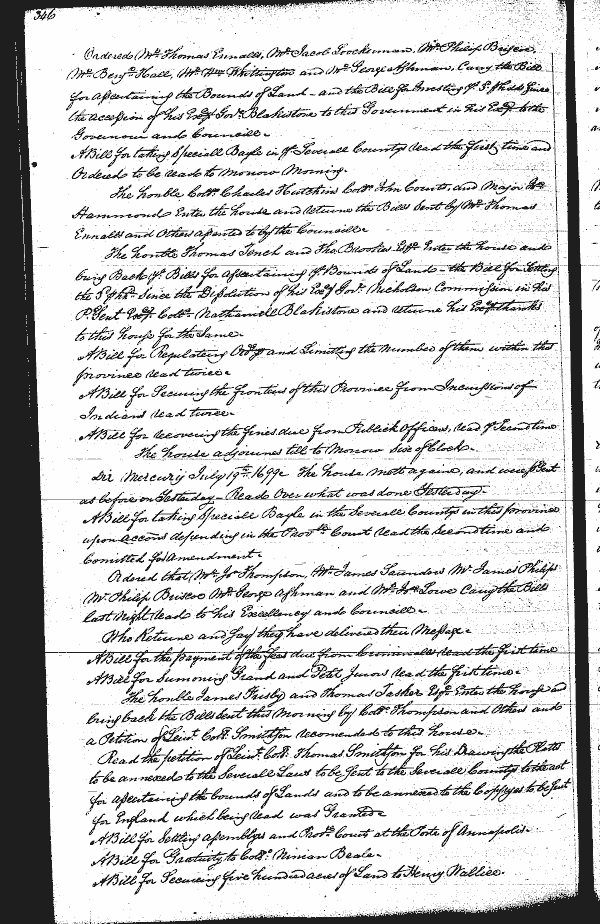 346
Ordered Mr. Thomas Ennalls, Mr. Jacob Loockerman, Mr. Philip Briscoe,
Mr. Benjn. Hall, Mr. Wm. Whitington and Mr. George Ashman, Carry the Bill
for ascertaining the Bounds of Land - and the Bill for Investing ye 3d. phhd Since
the accession of his Excy Govr. Blakistone to this Government in his Excy the
Governour and Councill.
A Bill for taking Speciall Bayle in ye Severall Countys read the first time and
Ordered to be read to Morrow Morning.
The honble Collo. Charles Hutchins Collo. John Courts, and Major Wm.
Hammond Enter the house and returne the Bills Sent by Mr. Thomas
Ennalls and Others assented to by the Councill.
The honble Thomas Tench and Tho. Brookes Esqr. Enter the house and
bring Back ye Bills for ascertaining ye Bounds of Land - the Bill for Setling
the 3d. phhd. Since the Dissolution of his Excy Govr. Nicholson Commission in his
P.sent Excy. Collo. Nathaniell Blakistone and returne his Excys thanks
to this house for the Same.
A Bill for Regulating Ordrys and Limitting the Number of them within this
province read twice.
A Bill for Securing the frontiers of this Province from Incursions of
Indians read twice.
A Bill for recovering the fines due from Publick Officers, read ye Second time
The house adjournes till to Morrow Six of Clock.
Die Mercurij July 19th. 1699. The house mett againe, and were P.sent
as before on Yesterday - Read Over what was done Yesterday.
A Bill for taking Speciall Bayle in the Severall Countys in this province
upon accons depending in the Provll Court read the Second time and
Comitted for Amendment.
Ordered that Mr. Jo. Thompson, Mr. James Saunders Mr. James Philips
Mr. Philip Briscoe Mr. George Ashman and Mr. Lowe Carry the Bills
last Night read to his Excellency and Councill.
Who Returne and Say they have delivered their Message.
A Bill for the payment of the fees due from Criminalls read the first time
A Bill for Sumoning Grand and Petit Jurors read the first time.
The honble James Frisby and Thomas Tasker Esqr. Enter the house and
bring back the Bills Sent this Morning by Collo. Thompson and Others and
a Petition of Leiut. Collo. Smithson recomended to this house.
Read the petition of Leiut. Collo. Thomas Smithson for his Drawing the Plotts
to be annexed to the Severall Laws to be Sent to the Severall Countys to the act
for ascertaining the bounds of Lands and to be annexed to the Coppyes to be Sent
for England which being read was Granted.
A Bill for Setling assemblys and Provll Courts at the Porte of Annapolis.
A Bill for Gratuity to Collo. Ninian Beale.
A Bill for Securing five hundred acres of Land to Henry Wallice.